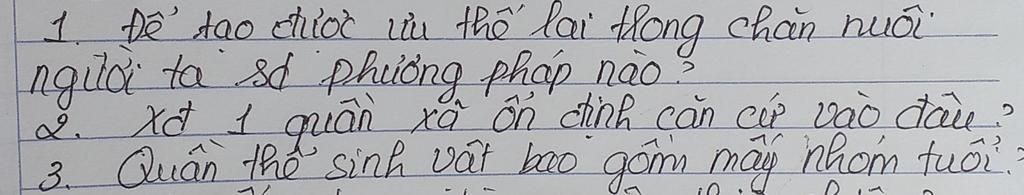 1. Để tạo được ưu thế lai trong chăn nuôi
người ta sd phương pháp nào?
2. Xđ 1 quần xã ổn định căn cứ vào đâu?
3. Quần thể sinh vật bao gồm mấy nhóm tuổi?